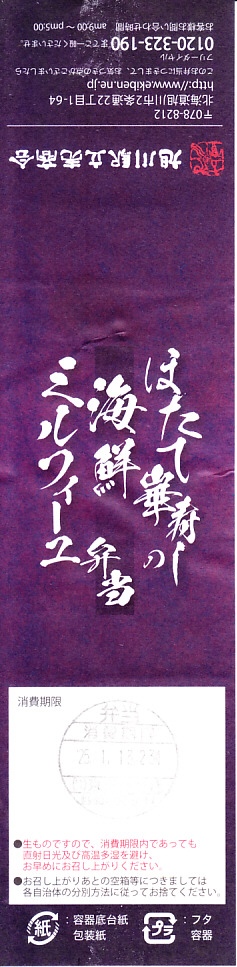 旭川駅立売商会
〒078-8212
北海道旭川市2条通22丁目1-64
http://www.ekiben.ne.jp
このお弁当につきまして、お気づきの点がございましたら
フリーダイヤル
0120-323-190までご一報くださいませ。
お客様お問い合わせ時間 am9:00～pm5:00
ほたて華寿しの
海鮮
弁当
ミルフィーユ
消費期限
弁当
消費期限
●生ものですので、消費期限内であっても
直射日光及び高温多湿を避け、
お早めにお召し上がりください。
●お召し上がりあとの空箱等につきましては
各自治体の分別方法に従ってお捨てください。
紙 :容器底台紙
包装紙
プラ :フタ
容器